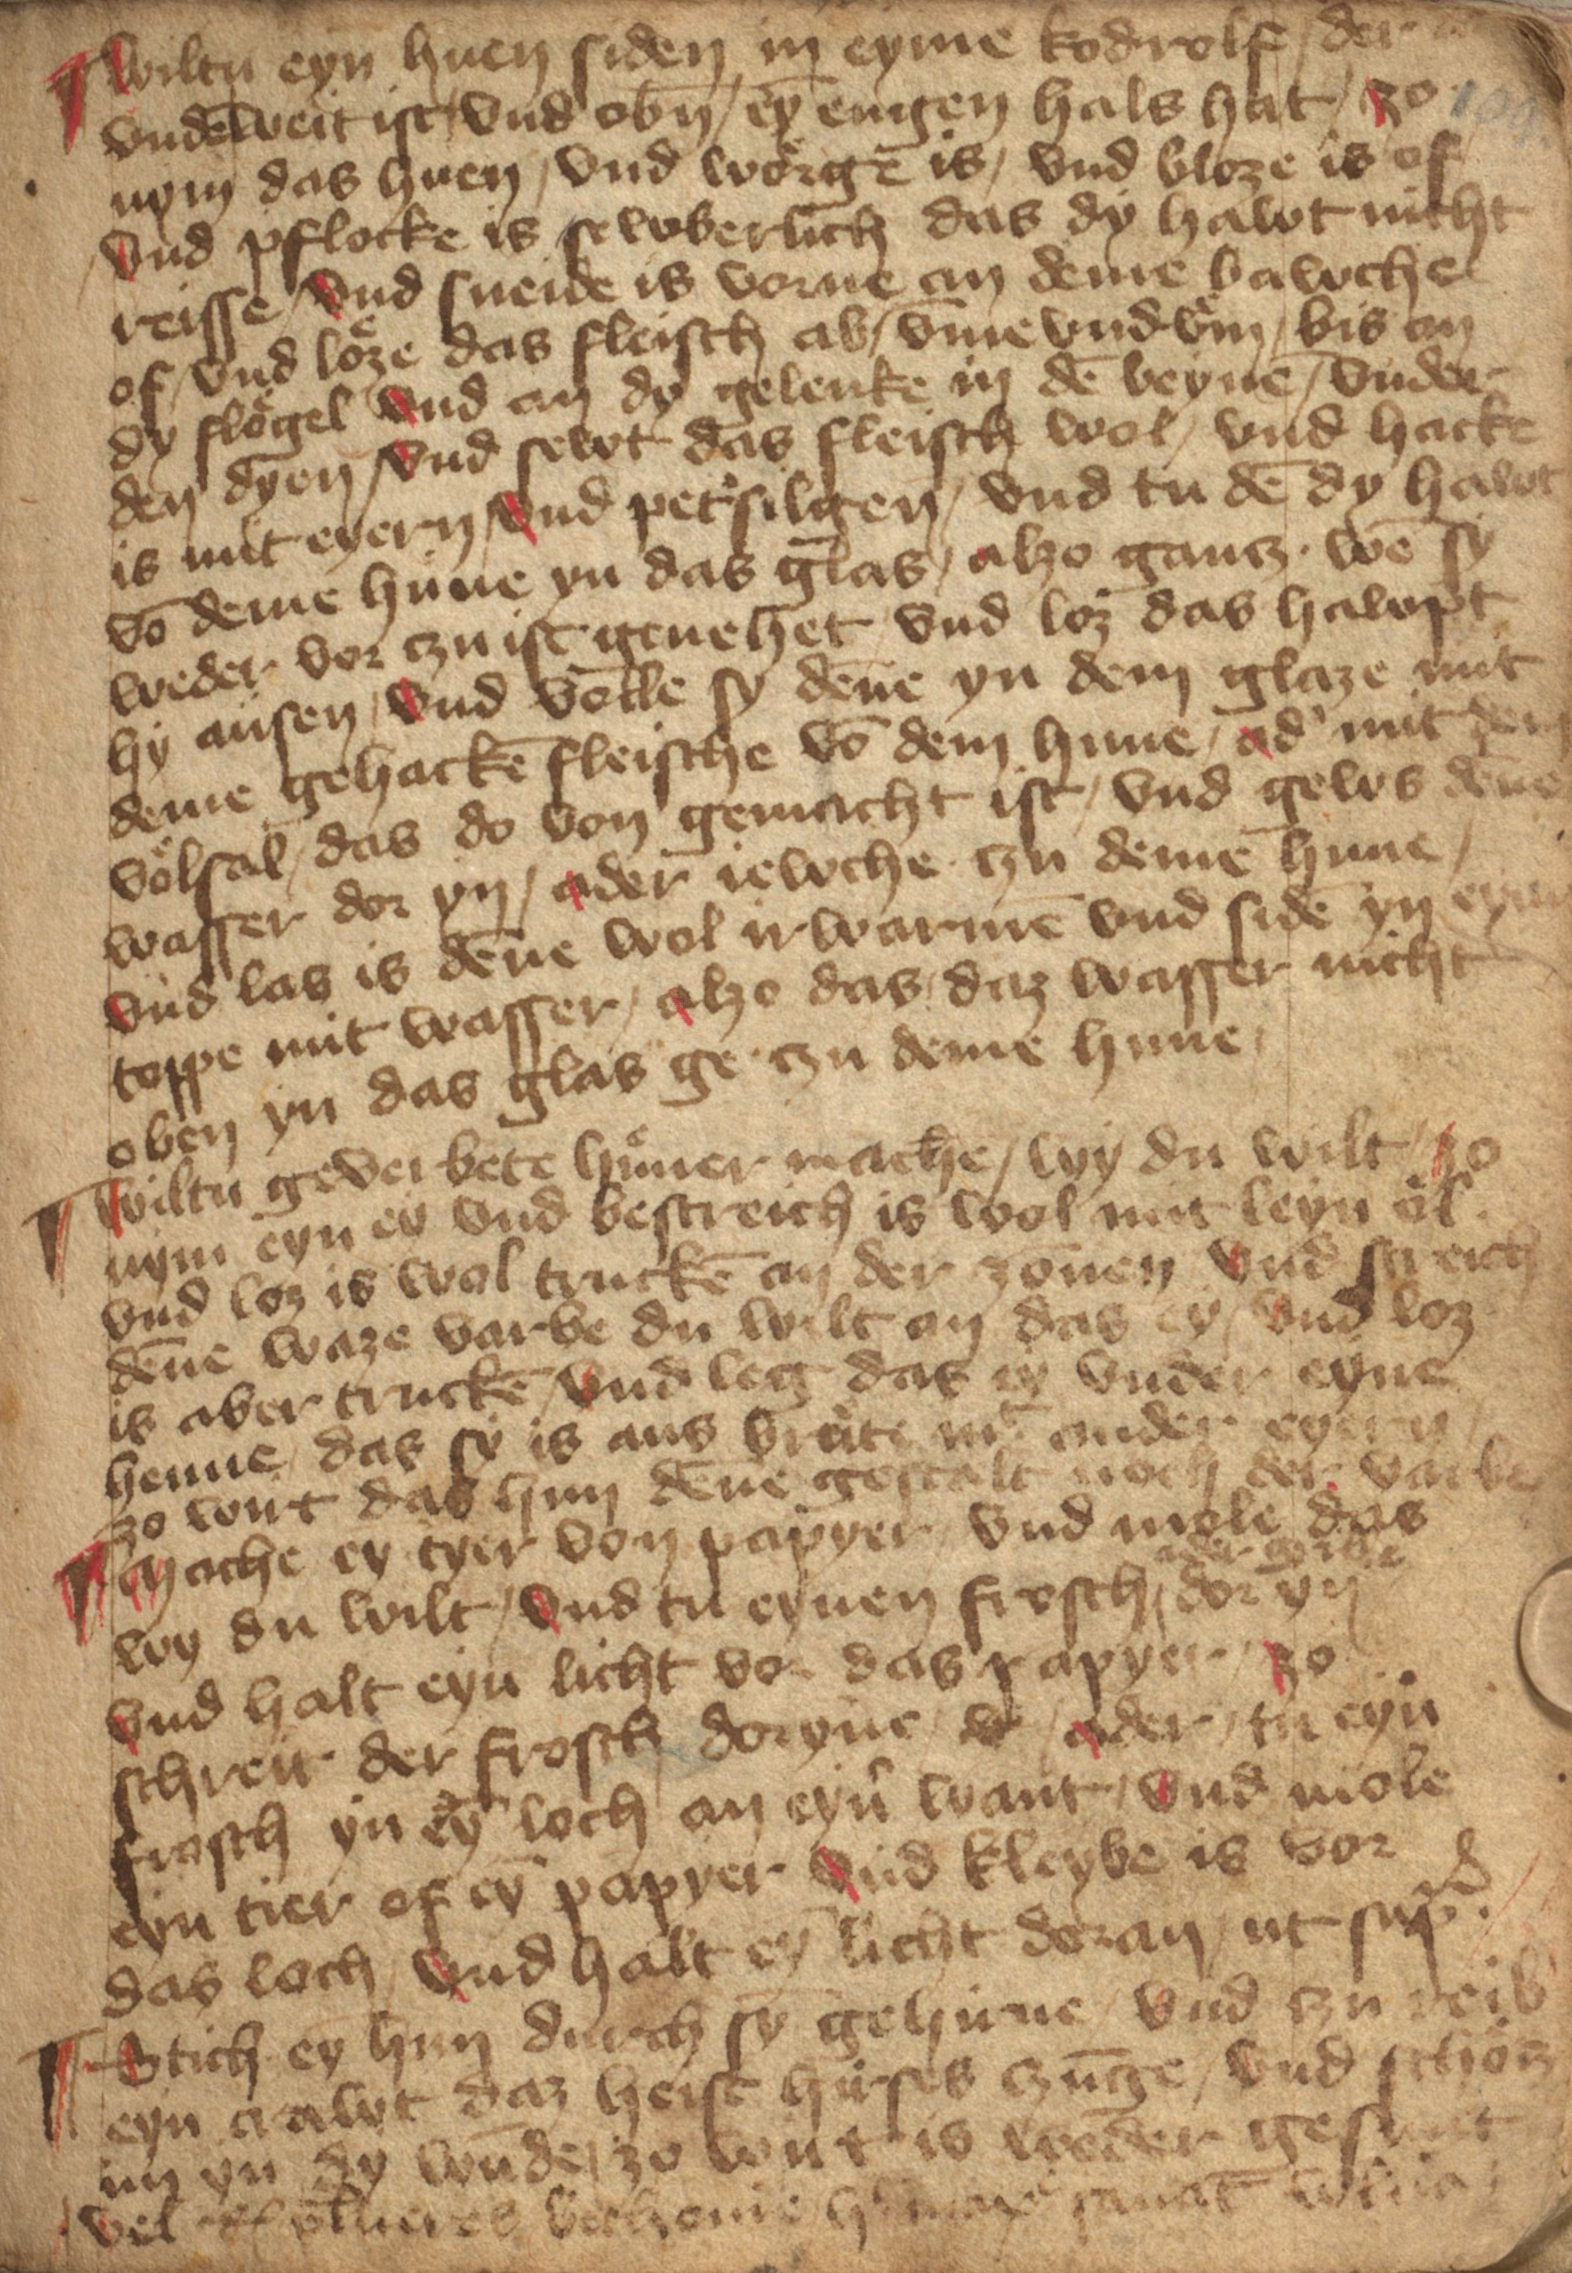 ¶ Wiltu eyn huen siden in eyme kodrolf / der
vndēweit ist / vnd obn̄ / eȳ engen hals hat / zo 109.
nym das huen / vnd wörgē is / vnd bloze is of
vnd pflocke is sewberlich das dy hawt nicht
reisse / vnd sneide is vorne an deme bawche
of / vnd löze das fleisch ab / vm̄e vnd vm̄ / bis an
dy flögel vnd an dy gelenke in dē beynē / vnder
den dyen / vnd sewt das fleisch wol / vnd hacke
is mit eyern / vnd pet'silgen / vnd tu dē dy hawt
vō deme hune yn das glas / alzo gancz · wē sy
weder vor czu ist genehet vnd loz das hawpt
hy ausen / vnd völle sy dēne yn dem glaze mit
deme gehackē fleische vō dem hune / ad' mit dem
völsal / das do von gemacht ist / vnd gews dēne
wasser dor yn / ader iewche czu deme hune /
vnd las is dēne wol irwarmē vnd sidē yn
toppe mit wasser / alzo das daz wasser nicht
oben yn das glas ge czu deme hune
¶ Wiltu geverbete hüner machē / wy du wilt / zo
nym eyn ey vnd bestreich is wol mit leyn öl
vnd loz is wol truckē an der zōnen vnd streich
dēne waze varbe du wilt an das ey / vnd loz
is aber truckē / vnd leg das ey vnder eyne
henne / das sy is aus brüte mit ander eyern /
zo wirt das hun dēne gestalt noch der varbe
¶ Mache ey tyer von papyer / vnd mole das
wy du wilt / vnd tu eynen frosch / dor yn
ader
vnd halt eyn licht vor das papyer / zo
schreit der frosch doryne / ader / tu eyn
frosch yn eȳ loch an eyn' want / vnd mole
eyn tier of eȳ papyer vnd kleybe is vor
das loch / vnd halt eȳ licht doran / ut sup̄
¶ Stich eȳ hun durch sȳ gehirne / vnd czu reib
eyn crawt daz heist hirses czūge / vnd
im yn dy wūde / zo wirt is weder gesunt
vel